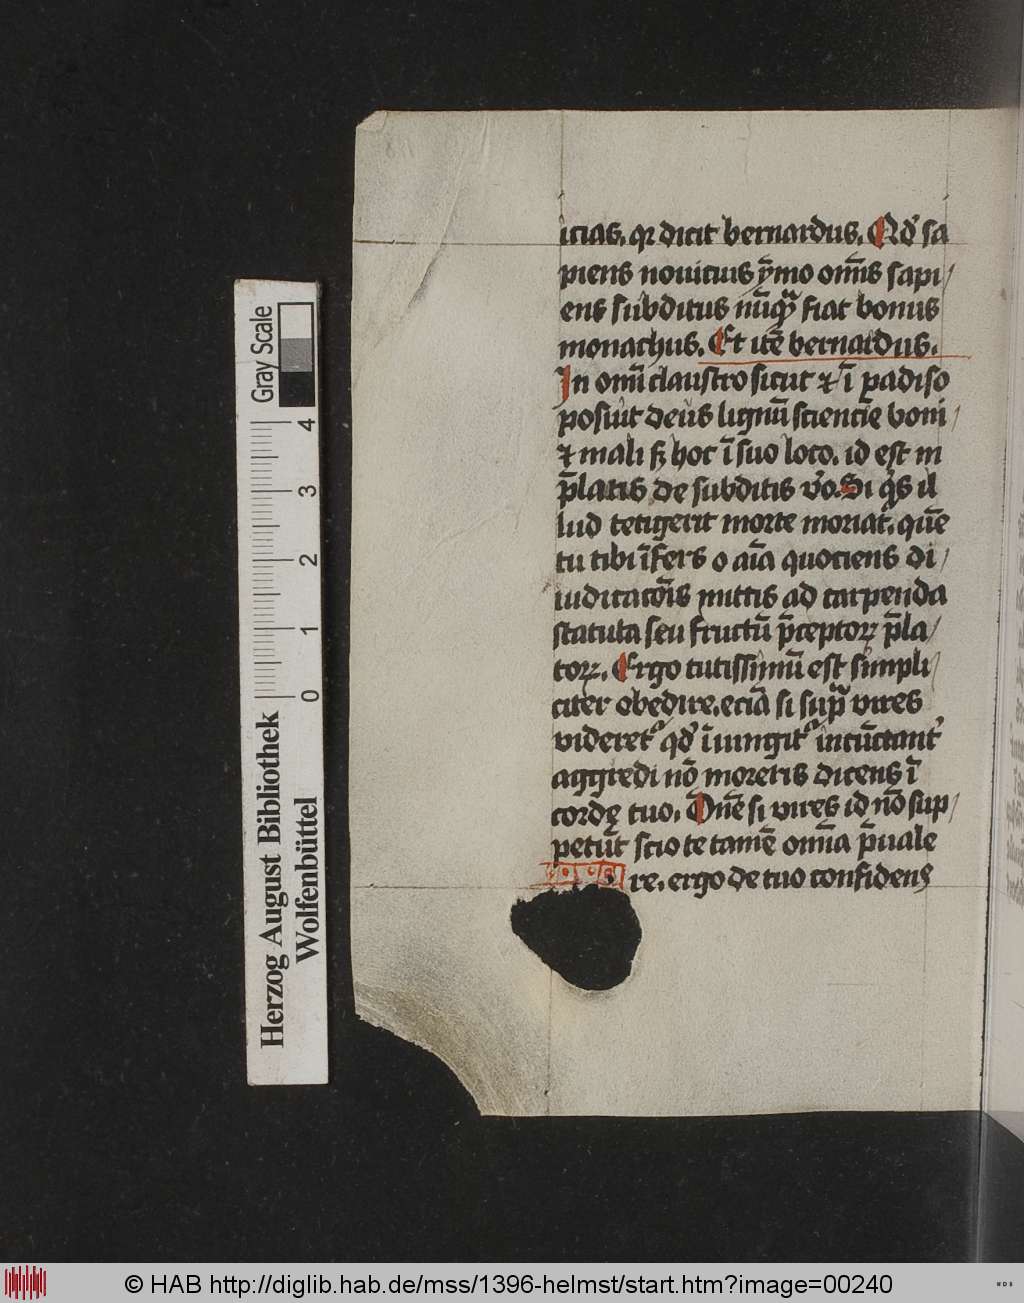 icias. qr dicit bernardus. Qd' sa
piens nouicius ȳmo om̄is sapi/
ens subditus nūq̄ fiat bonus
monachus. Et itē bernardus.
In om̄i claustro sicut ⁊ ī padiso
posuit deus lignū sciencie boni/
⁊ mali sꝫ hoc ī suo loco. id est in
p̄latis de subditis v̄o. Si q̄s il
lud tetigerit morte moriat̄. quē
tu tibi īfers o aīa quociens di/
iudicacōīs mittis ad carpenda
statuta seu fructū p̄ceptorꝝ p̄la/
torꝝ. Ergo tutissimū est simpli/
citer obedire. eciā si sup̄ vires
videret' qd' īiungit' incūctant'
aggredi nō moreris dicens ī
corde tuo. Dn̄e si vires id nō sup/
petūt scio te tamē omīa p̄uale
re. ergo de tuo confidens
Herzog August Bibliothek
Wolfenbüttel
Gray Scale
0 1 2 3 4
© HAB http://diglib.hab.de/mss/1396-helmst/start.htm?image=00240